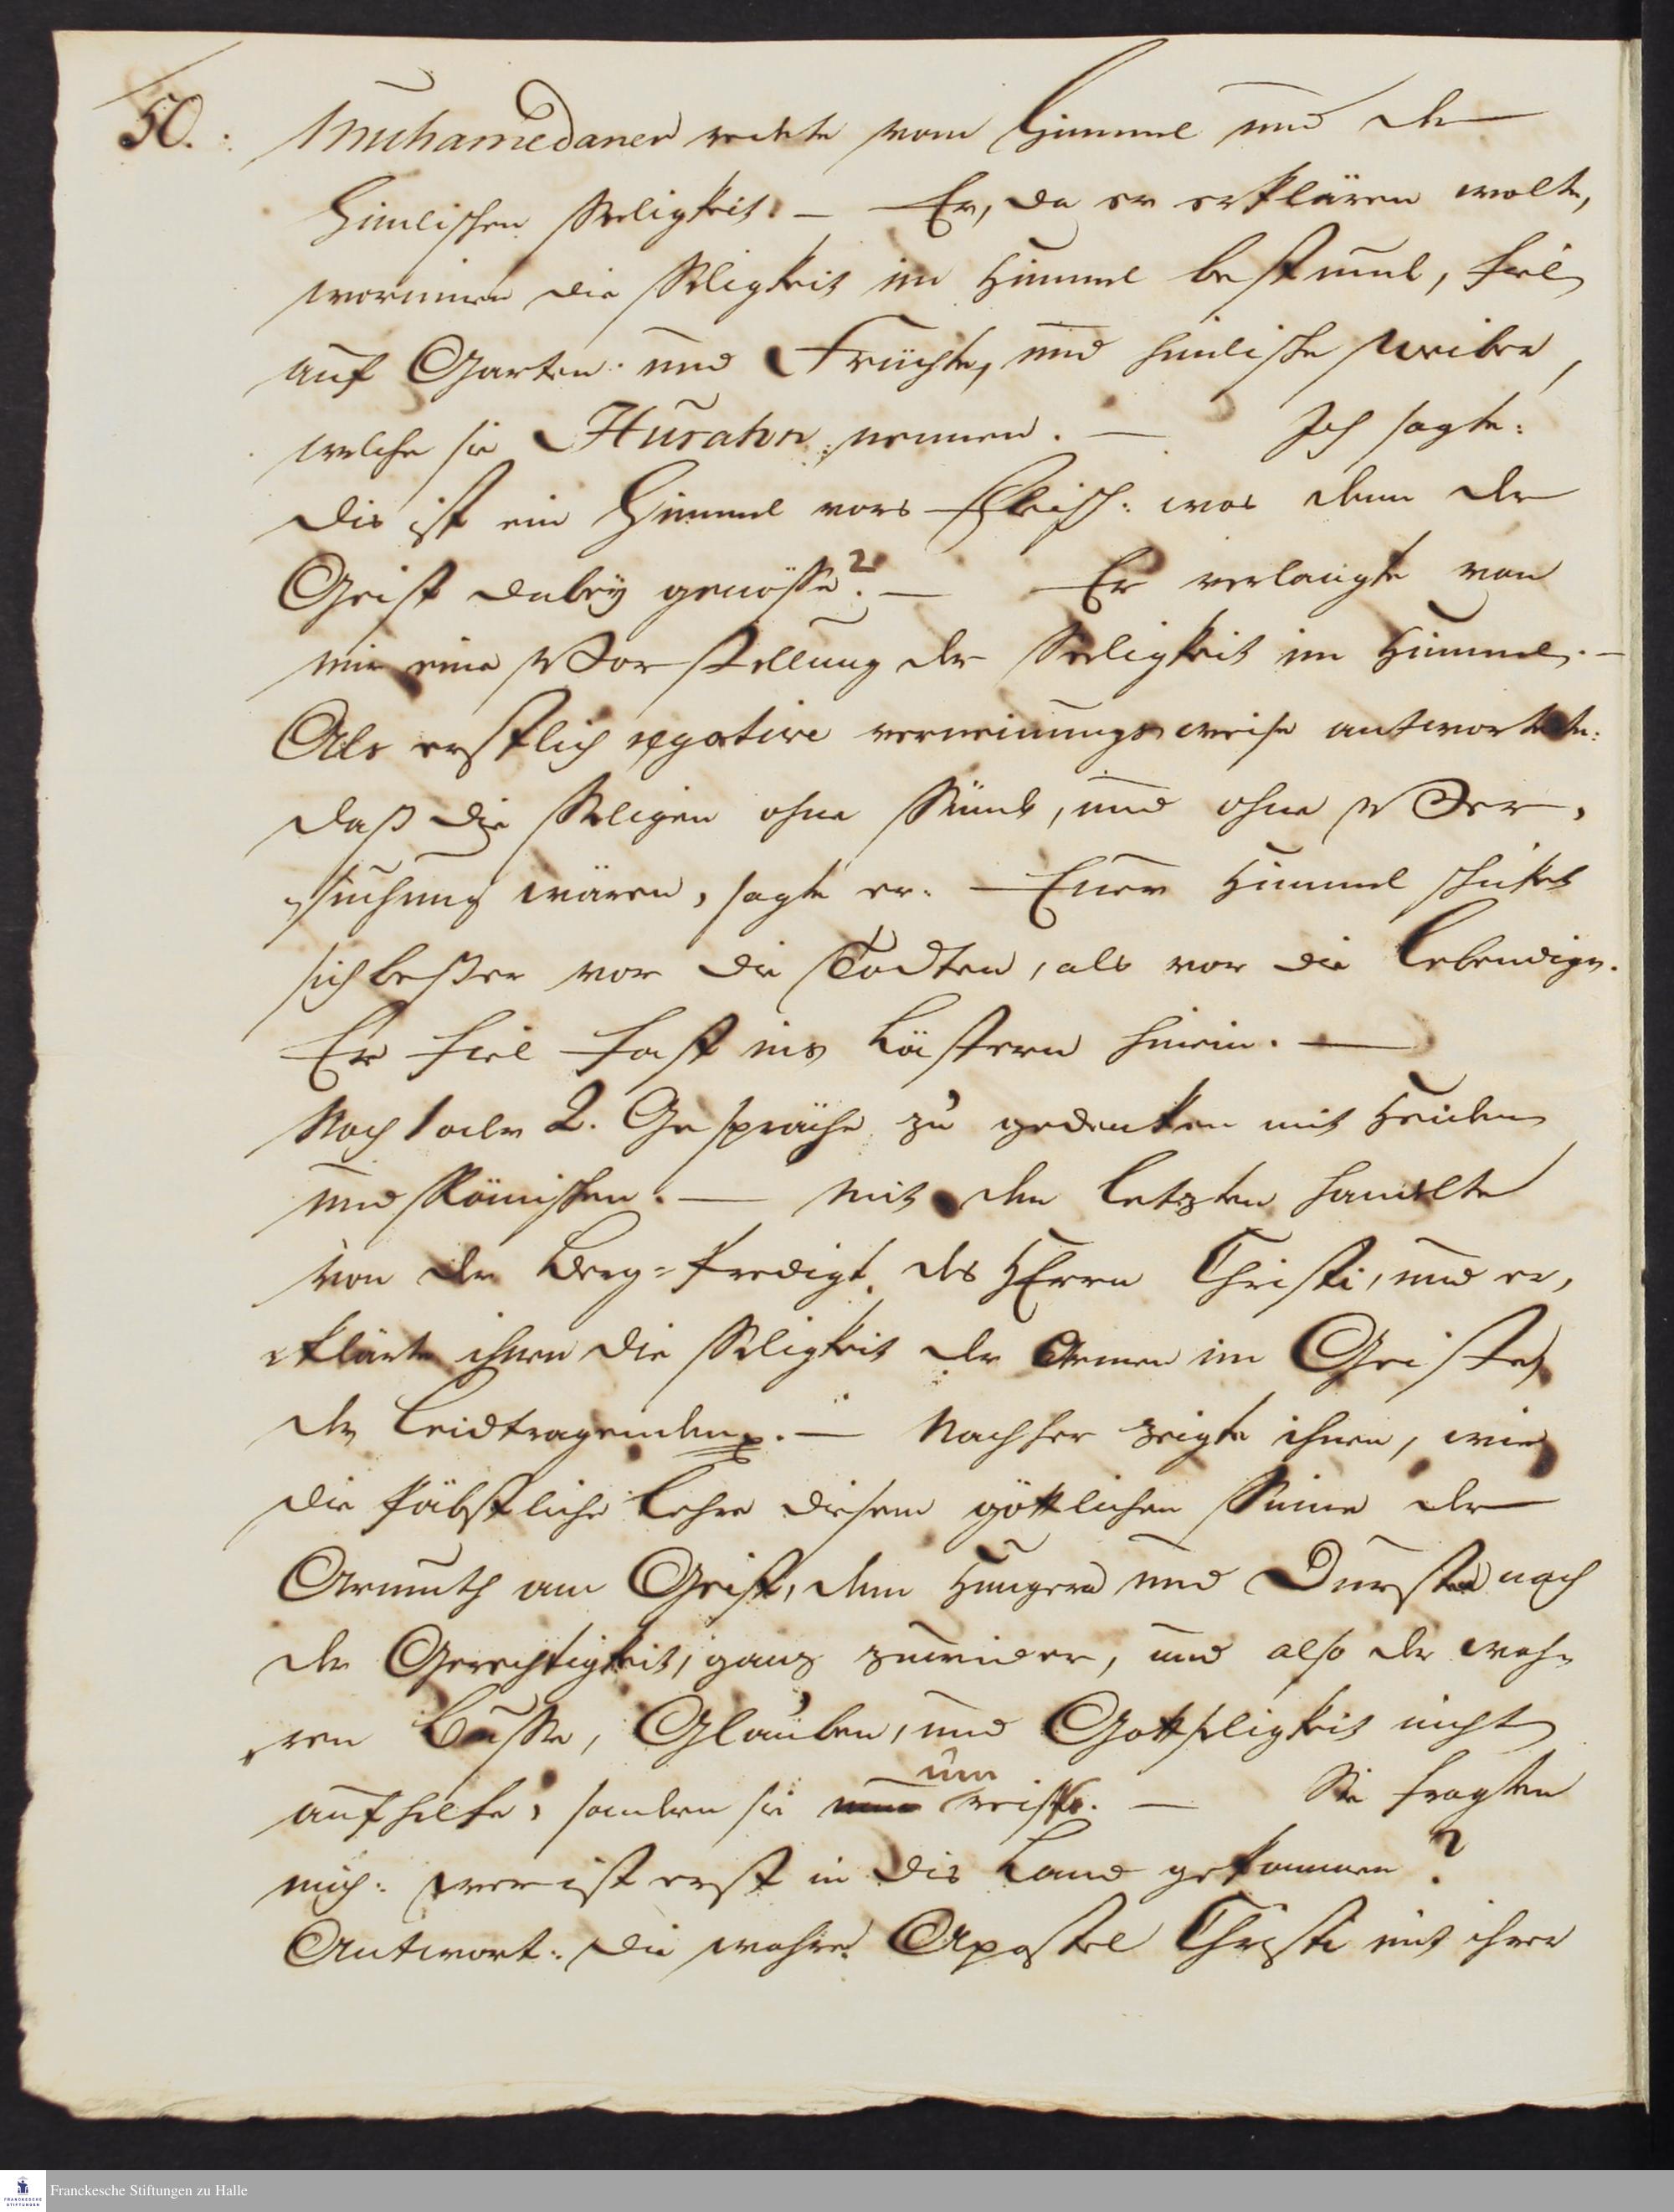 50.
Muhamedaner redete vom Himmel und der
Himlischen Seeligkeit. — Er, da er erklären wolte,
worinnen die Seligkeit im Himmel bestund, fiel
auf Garten und Früchte, und himlische Weiber,
welche sie Hurahn nennen. — Ich sagte:
dis ist ein Himmel vors Fleisch: was denn der
Geist dabey genösse? — Er verlangte von
mir eine Vorstellung der Seeligkeit im Himmel. —
Als erstlich negative verneinungsweise antwortete:
daß die Seligen ohne Sünde, und ohne Ver,
suchung wären, sagte er: Euer Himmel schicket
sich beßer vor die Todten, als vor die Lebendige.
Er fiel fast ins Lästern hinein. —
Noch 1 oder 2. Gespräche zu gedenken mit Heiden
und Römischen. — Mit den letzten handelte
von der Berg-Predigt des HErrn Christi, und er,
klärte ihnen die Seligkeit der Armen im Geiste,
der Leidtragenden. — Nachher zeigte ihnen, wie
die Päbstliche Lehre diesem göttlichen Sinne der
Armuth am Geist, dem Hungern und Dursten nach
der Gerechtigkeit, ganz zuwider, und also der wah,
ren Busse, Glauben, und Gottseligkeit nicht
aufhelfe, sondern sie um reisse. — Sie fragten
mich: wer ist erst in dis Land gekommen?
Antwort: die wahre Apostel Christi mit ihrer
Franckesche Stiftungen zu Halle
FRANCKESCHE
STIFTUNGEN